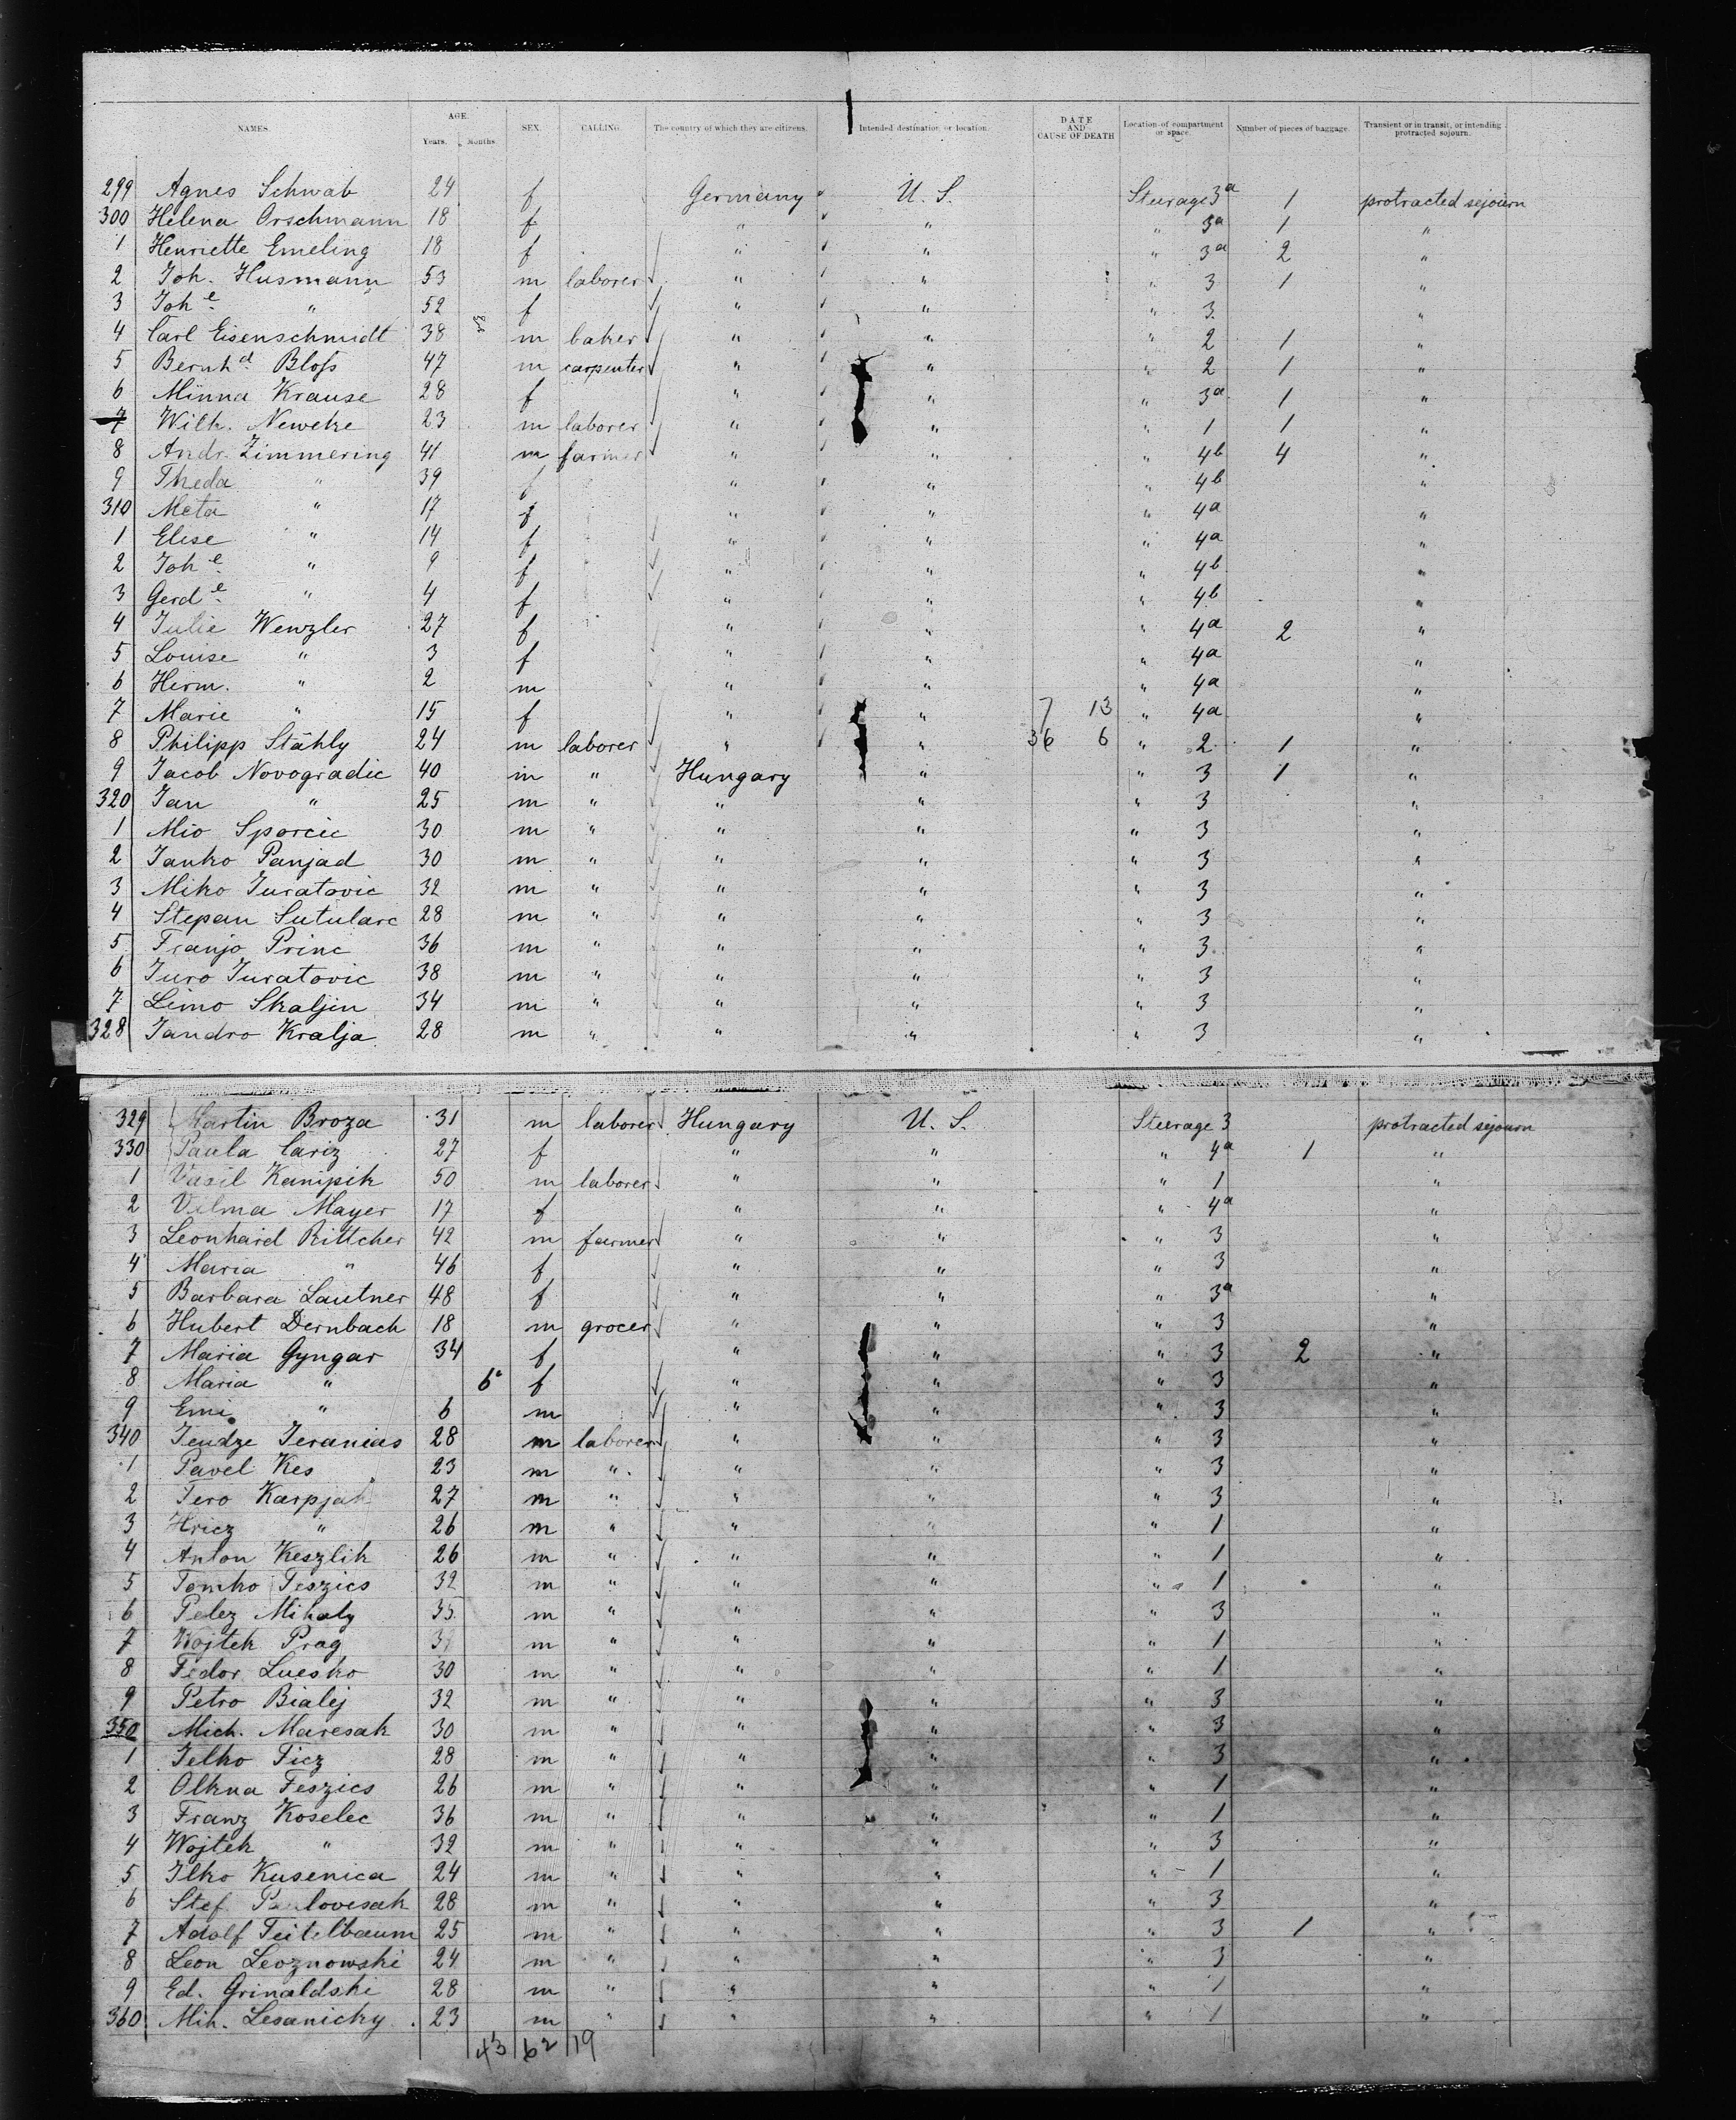 NAMES. AGE. Years. Months. SEX. CALLING. The country of which they are citizens. Intended destination or location. DATE AND CAUSE OF DEATH Location of compartment or space. Number of pieces of baggage. Transient or in transit, or intending protracted sojourn.
299 Agnes Schwab 24 f Germany U. S. Steerage 3a 1 protracted sejourn
300 Helena Orschmann 18 f " " " 3a 1 "
1 Henriette Emeling 18 f " " " 3a 2 "
2 Joh. Husmann 53 m laborer " " " 3 1 "
3 Joh e " 52 f " " " 3 "
4 Carl Eisenschmidt 38 m baker " " " 2 1 "
5 Bernhd Bloss 47 m carpenter " " " 2 1 "
6 Minna Krause 28 f " " " 3a 1 "
7 Wilh. Neweke 23 m laborer " " " 1 1 "
8 Andr. Zimmering 41 m farmer " " " 4b 4 "
9 Theda " 39 f " " " 4b "
310 Meta " 17 f " " " 4a "
1 Elise " 14 f " " " 4a "
2 Joh e " 9 f " " " 4b "
3 Gerd e " 4 f " " " 4b "
4 Julie Wenzler 27 f " " " 4a 2 "
5 Louise " 3 f " " " 4a "
6 Herm. " 2 m " " " 4a "
7 Marie " 15 f " " 7 13 " 4a "
8 Philipp Stähly 24 m laborer " " 36 6 " 2 1 "
9 Jacob Novogradic 40 m " Hungary " " 3 1 "
320 Jan " 25 m " " " " 3 "
1 Mio Sporcic 30 m " " " " 3 "
2 Janko Panjad 30 m " " " " 3 "
3 Miko Juratovic 32 m " " " " 3 "
4 Stepan Sutularc 28 m " " " " 3 "
5 Franjo Princ 36 m " " " " 3 "
6 Juro Juratovic 38 m " " " " 3 "
7 Simo Skaljin 34 m " " " " 3 "
328 Jandro Kralja 28 m " " " " 3 "
329 Martin Broza 31 m laborer Hungary U. S. Steerage 3 protracted sejourn
330 Paula Cariz 27 f " " " 4a 1 "
1 Vasil Kanipik 50 m laborer " " " 1 "
2 Vilma Mayer 17 f " " " 4a "
3 Leonhard Rittcher 42 m farmer " " " 3 "
4 Maria " 46 f " " " 3 "
5 Barbara Lautner 48 f " " " 3a "
6 Hubert Dernbach 18 m grocer " " " 3 "
7 Maria Gyngar 34 f " " " 3 2 "
8 Maria " 6 f " " " 3 "
9 Emi " 6 m " " " 3 "
340 Jendze Jeranias 28 m laborer " " " 3 "
1 Pavel Kes 23 m " " " " 3 "
2 Fero Karpjak 27 m " " " " 3 "
3 Hricz " 26 m " " " " 1 "
4 Anton Keszlik 26 m " " " " 1 "
5 Tomko Feszics 32 m " " " " 1 "
6 Pelez Mihaly 35 m " " " " 3 "
7 Wojtek Prag m " " " " 1 "
8 Fedor Luesko 30 m " " " " 1 "
9 Petro Bialej 32 m " " " " 3 "
350 Mich. Maresak 30 m " " " " 3 "
1 Jelko Ficz 28 m " " " " 3 "
2 Olkna Feszics 26 m " " " " 1 "
3 Franz Koselec 36 m " " " " 1 "
4 Wojtek " 32 m " " " " 3 "
5 Ilko Kusenica 24 m " " " " 1 "
6 Stef. Pavlovesak 28 m " " " " 3 "
7 Adolf Teitelbaum 25 m " " " " 3 1 "
8 Leon Leoznowski 24 m " " " " 3 "
9 Ed. Grinaldski 28 m " " " " 1 "
360 Mih. Lesanicky 23 m " " " " 1 "
43 62 19